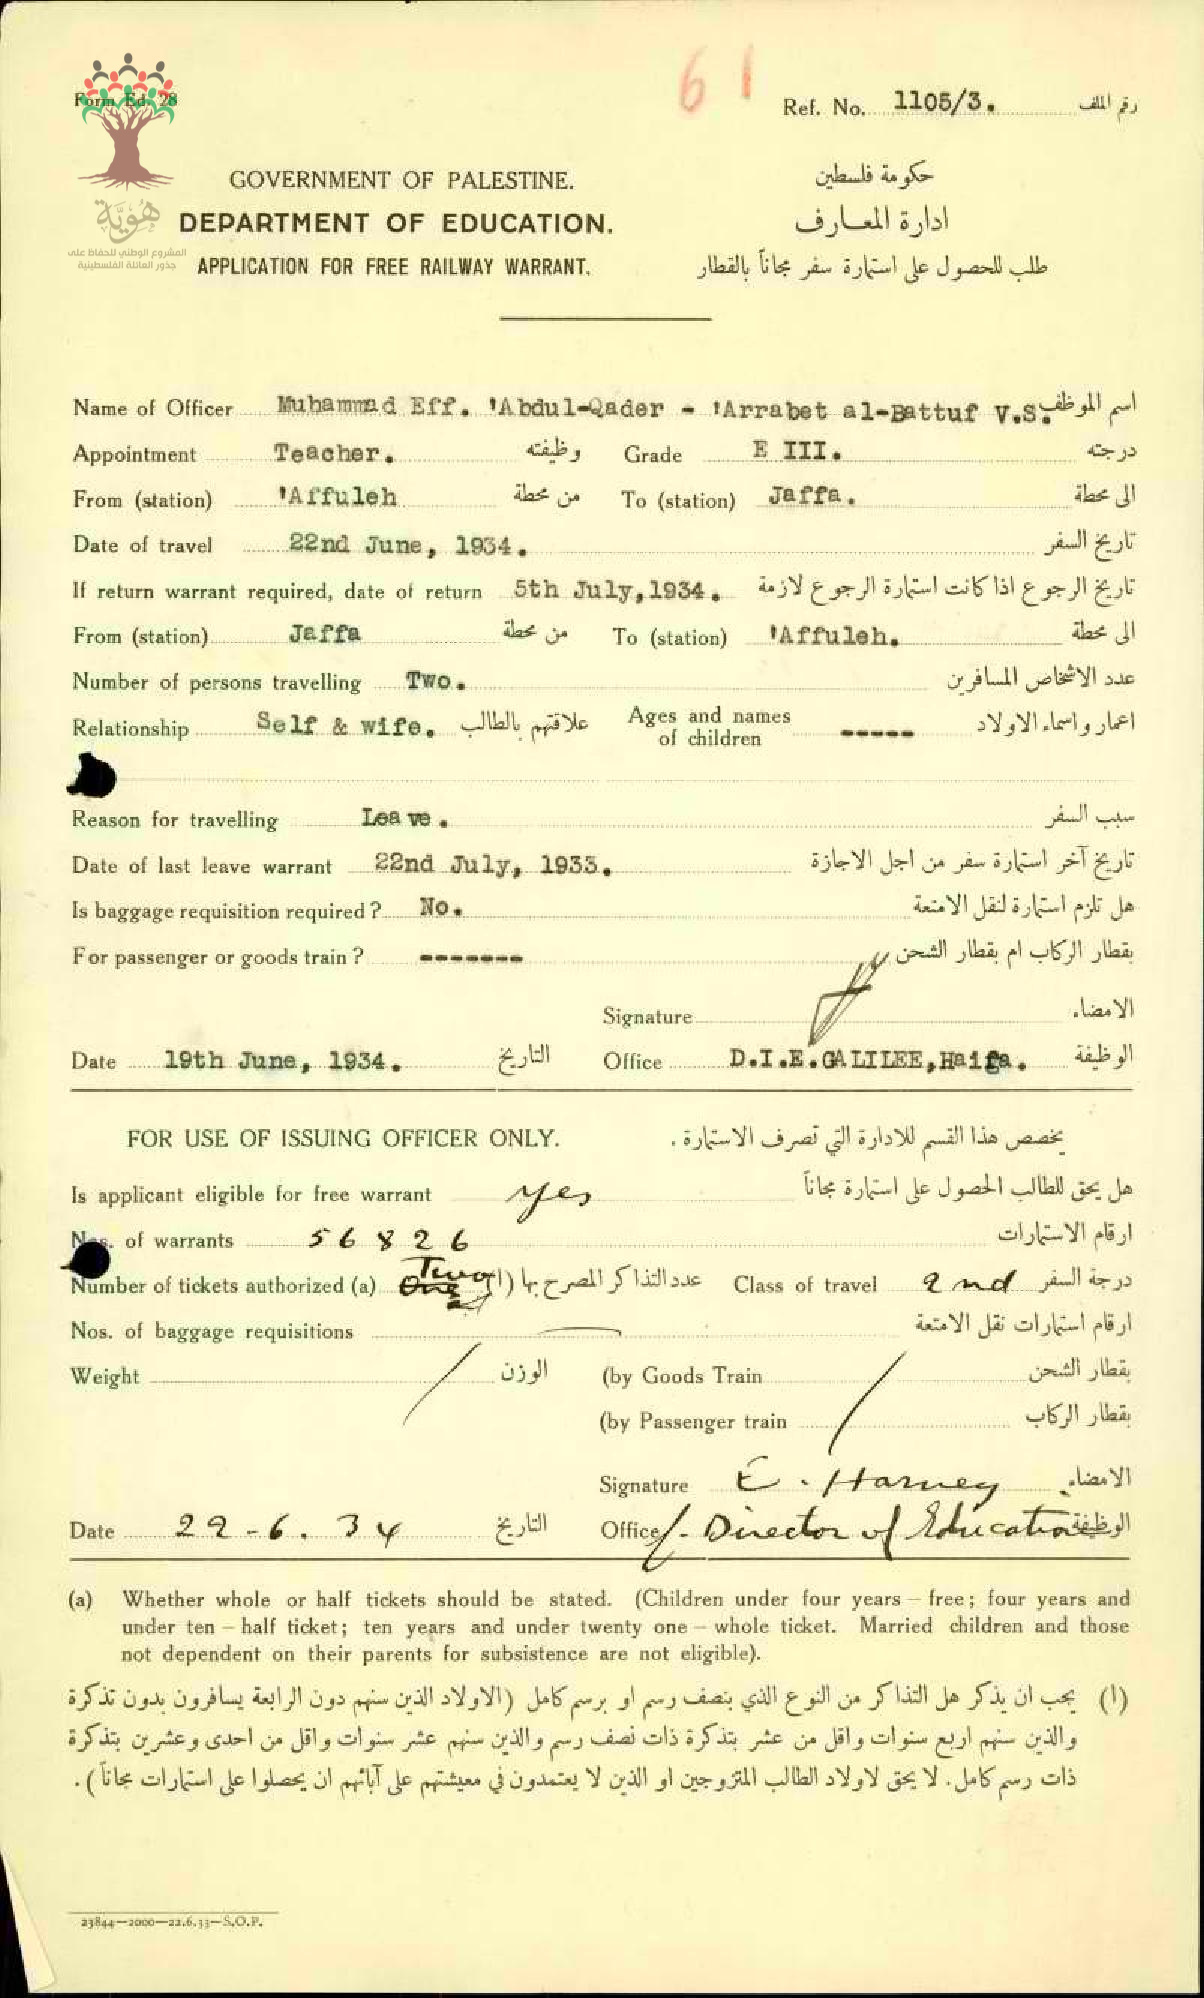 61
Form Ed. 28
Ref. No. 1105/3. رقم الملف
هُوِيَّة
المشروع الوطني للحفاظ على
جذور العائلة الفلسطينية
GOVERNMENT OF PALESTINE. حكومة فلسطين
DEPARTMENT OF EDUCATION. ادارة المعارف
APPLICATION FOR FREE RAILWAY WARRANT. طلب للحصول على استمارة سفر مجاناً بالقطار
Name of Officer Muhammad Eff. 'Abdul-Qader - 'Arrabet al-Battuf V.S. اسم الموظف
Appointment Teacher. وظيفته Grade E III. درجته
From (station) 'Affuleh من محطة To (station) Jaffa. الى محطة
Date of travel 22nd June, 1934. تاريخ السفر
If return warrant required, date of return 5th July,1934. تاريخ الرجوع اذا كانت استمارة الرجوع لازمة
From (station) Jaffa من محطة To (station) 'Affuleh. الى محطة
Number of persons travelling Two. عدد الاشخاص المسافرين
Relationship Self & wife. علاقتهم بالطالب Ages and names of children ----- اعمار واسماء الاولاد
Reason for travelling Leave. سبب السفر
Date of last leave warrant 22nd July, 1933. تاريخ آخر استمارة سفر من اجل الاجازة
Is baggage requisition required? No. هل تلزم استمارة لنقل الامتعة
For passenger or goods train? ------- بقطار الركاب ام بقطار الشحن
Signature الامضاء.
Date 19th June, 1934. التاريخ Office D.I.E.GALILEE,Haifa. الوظيفة
FOR USE OF ISSUING OFFICER ONLY. يخصص هذا القسم للادارة التي تصرف الاستمارة.
Is applicant eligible for free warrant yes هل يحق للطالب الحصول على استمارة مجاناً
Nos. of warrants 56826 ارقام الاستمارات
Number of tickets authorized (a) One Two عدد التذاكر المصرح بها (ا) Class of travel 2nd درجة السفر
Nos. of baggage requisitions — ارقام استمارات نقل الامتعة
Weight / الوزن (by Goods Train / بقطار الشحن
(by Passenger train بقطار الركاب
Signature E. Harney الامضاء.
Date 22-6.34 التاريخ Office f. Director of Education الوظيفة
(a) Whether whole or half tickets should be stated. (Children under four years – free; four years and
under ten – half ticket; ten years and under twenty one – whole ticket. Married children and those
not dependent on their parents for subsistence are not eligible).
(ا) يجب ان يذكر هل التذاكر من النوع الذي بنصف رسم او برسم كامل (الاولاد الذين سنهم دون الرابعة يسافرون بدون تذكرة
والذين سنهم اربع سنوات واقل من عشر بتذكرة ذات نصف رسم والذين سنهم عشر سنوات واقل من احدى وعشرين بتذكرة
ذات رسم كامل. لا يحق لاولاد الطالب المتزوجين او الذين لا يعتمدون في معيشتهم على آبائهم ان يحصلوا على استمارات مجاناً).
23844—2000—22.6.33—S.O.P.